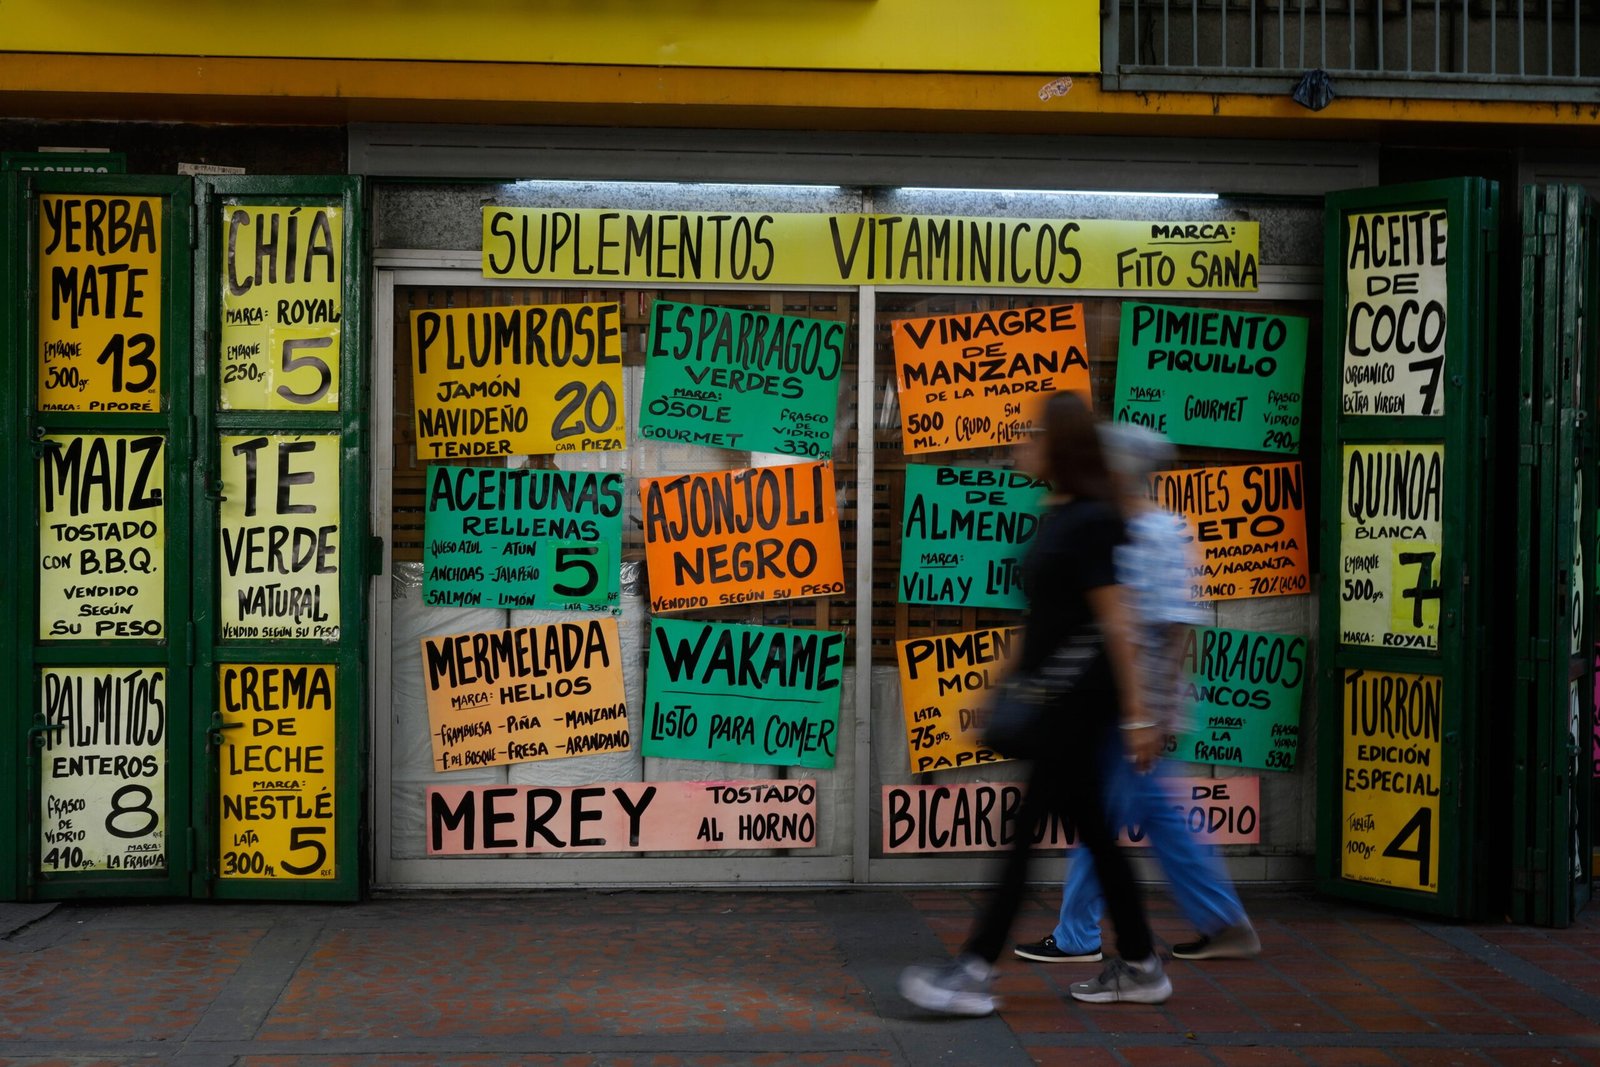 PLOMERO
YERBA
MATE
EMPAQUE
500gr. 13
REF
MARCA: PIPORÉ
MAIZ
TOSTADO
CON B.B.Q.
VENDIDO
SEGÚN
SU PESO
PALMITOS
ENTEROS
FRASCO
DE
VIDRIO 8
REF
410grs. MARCA: LA FRAGUA
CHÍA
MARCA: ROYAL
EMPAQUE
250gr 5
TÉ
VERDE
NATURAL
VENDIDO SEGÚN SU PESO
CREMA
DE
LECHE
MARCA:
NESTLÉ
LATA
300ML 5
REF
SUPLEMENTOS VITAMINICOS MARCA:
FITO SANA
PLUMROSE
JAMÓN
NAVIDEÑO 20
TENDER CADA PIEZA
ESPÁRRAGOS
VERDES
MARCA:
O'SOLE FRASCO
DE
VIDRIO
GOURMET 330gr
ACEITUNAS
RELLENAS
-QUESO AZUL - ATÚN
ANCHOAS - JALAPEÑO 5
SALMÓN - LIMÓN
REF
AJONJOLI
NEGRO
VENDIDO SEGÚN SU PESO
MERMELADA
MARCA: HELIOS
FRAMBUESA - PIÑA - MANZANA
-F. DEL BOSQUE - FRESA - ARANDANO
WAKAME
LISTO PARA COMER
MEREY TOSTADO
AL HORNO
VINAGRE
DE
MANZANA
DE LA MADRE
500
ML. CRUDO, SIN
FILTRAR
PIMIENTO
PIQUILLO
MARCA:
O'SOLE GOURMET FRASCO
DE
VIDRIO
290gr.
BEBIDA
DE
ALMEND
MARCA:
VILAY
SUN
MACADAMIA
NARANJA
BLANCO - 70% CACAO
PIMEN
MOL
LATA
75grs.
PAPR
ARRAGOS
ANCOS
MARCA:
LA
FRAGUA
FRASCO
VIDRIO
530gr
BICARBON DE
SODIO
ACEITE
DE
COCO
ORGANICO
EXTRA VIRGEN 7
QUINOA
BLANCA
EMPAQUE
500grs 7
MARCA: ROYAL
TURRÓN
EDICIÓN
ESPECIAL
TABLETA
100gr. 4
REF